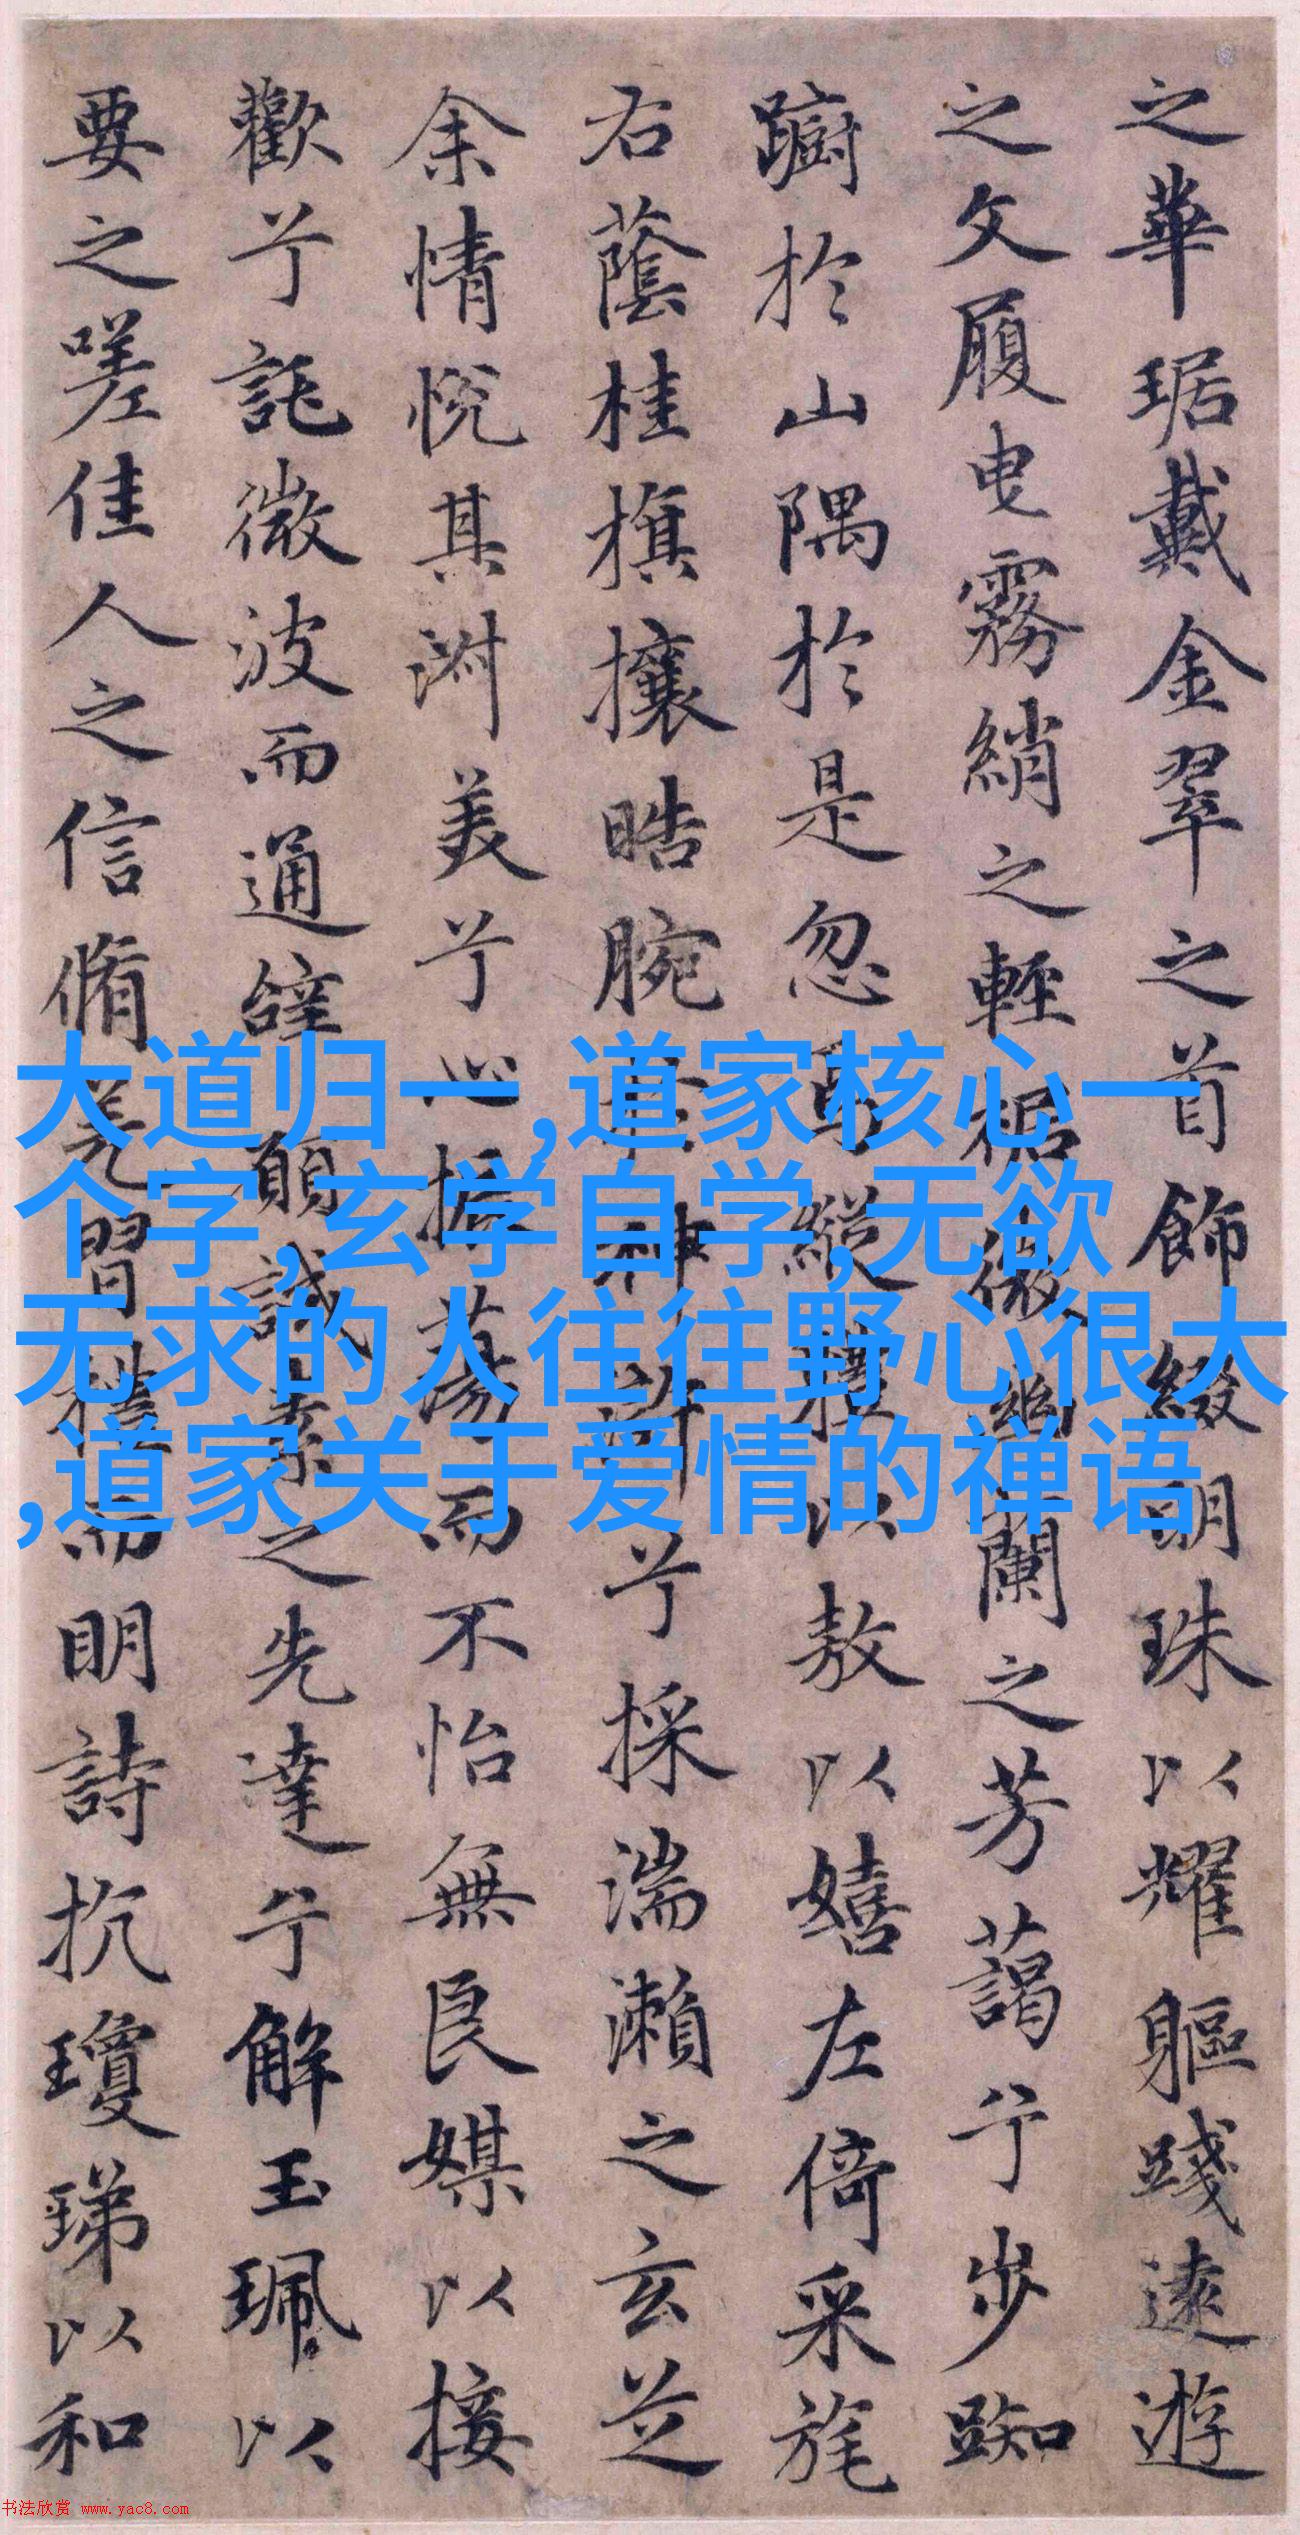 之華琚戴金翠之首飾綴明珠以耀軀踐遠遊
之文履曳霧綃之輕裾微幽蘭之芳藹兮步踟
躕於山隅於是忽焉縱體以敖以嬉左倚采旄
右蔭桂旗攘晧腕於神滸兮採湍瀨之玄芝
余情悅其淑美兮心振蕩而不怡無良媒以接
歡兮託微波而通辭願誠素之先達兮解玉珮以
要之嗟佳人之信脩羌習禮而明詩抗瓊珶以和
大道归一,道家核心一
个字,玄学自学,无欲
无求的人往往野心很大
,道家关于爱情的禅语
书法欣赏 www.yac8.com